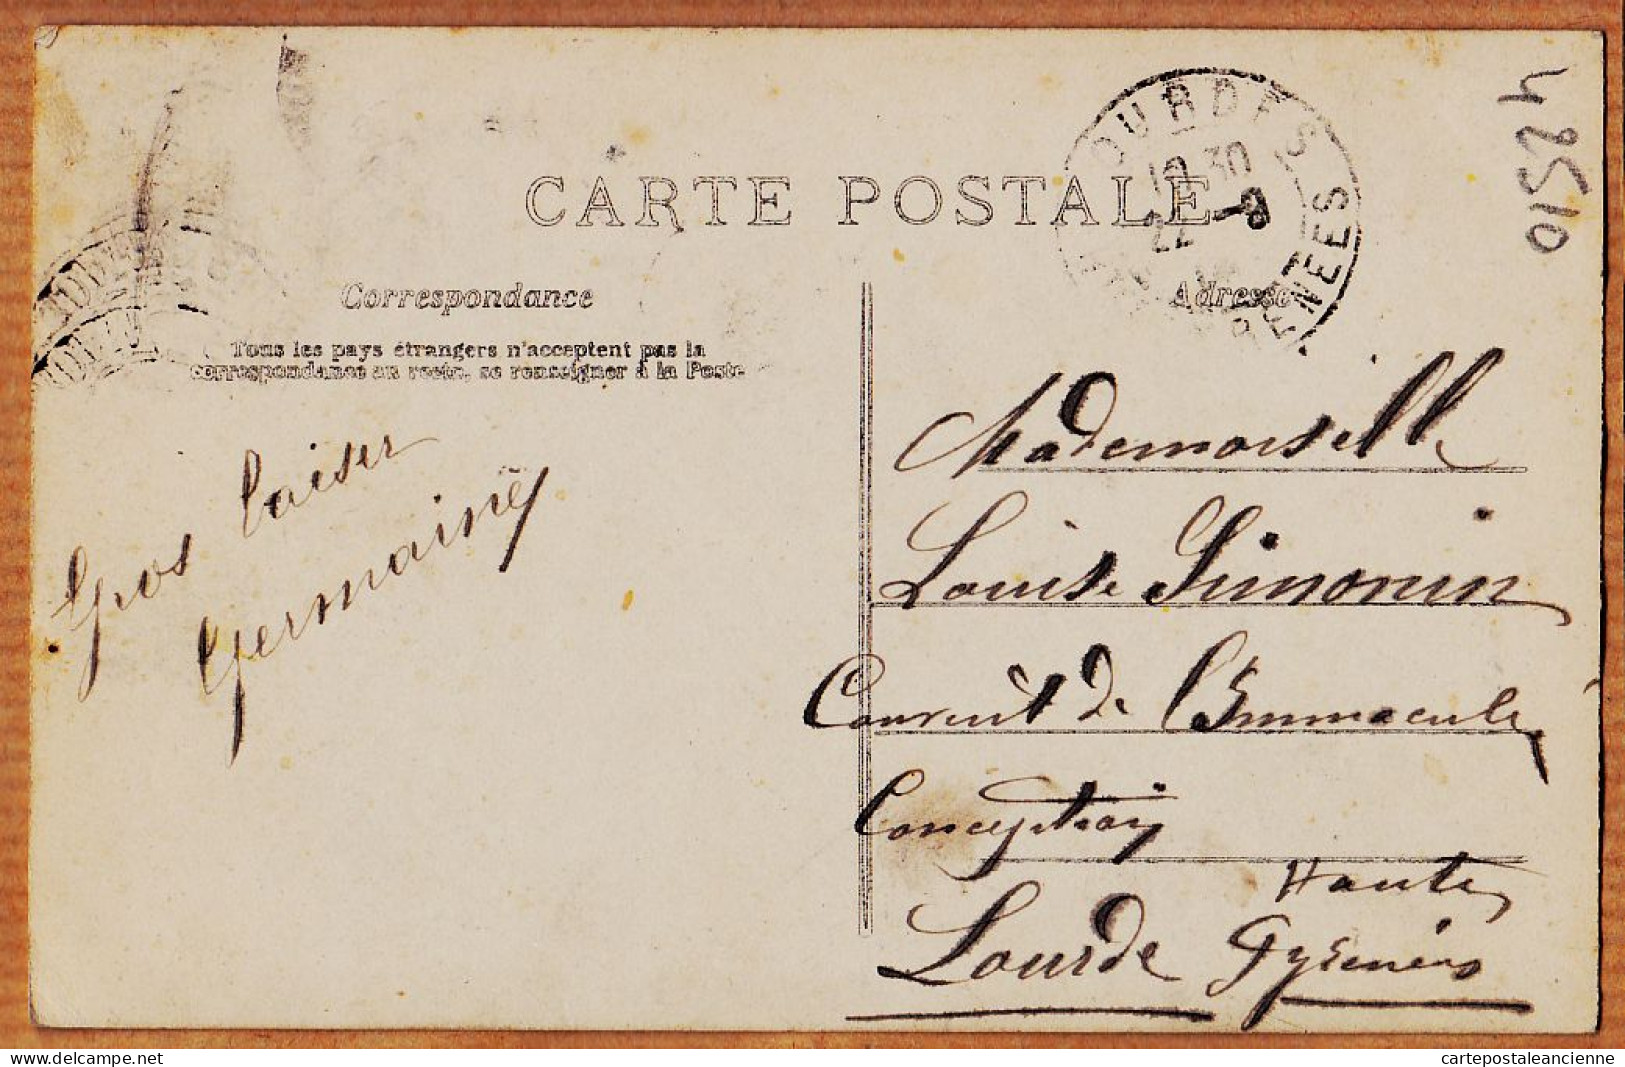 CARTE POSTALE
Correspondance
Tous les pays étrangers n'acceptent pas la
correspondance au recto, se renseigner à la Poste
Adresse
OURDES
22 -8
NEES
42510
Gros baiser
Germaine
Mademoiselle
Louise Simonin
Couvent de l'Immaculé
Conception
Hautes
Lourde Pyrénées
cartepostaleancienne